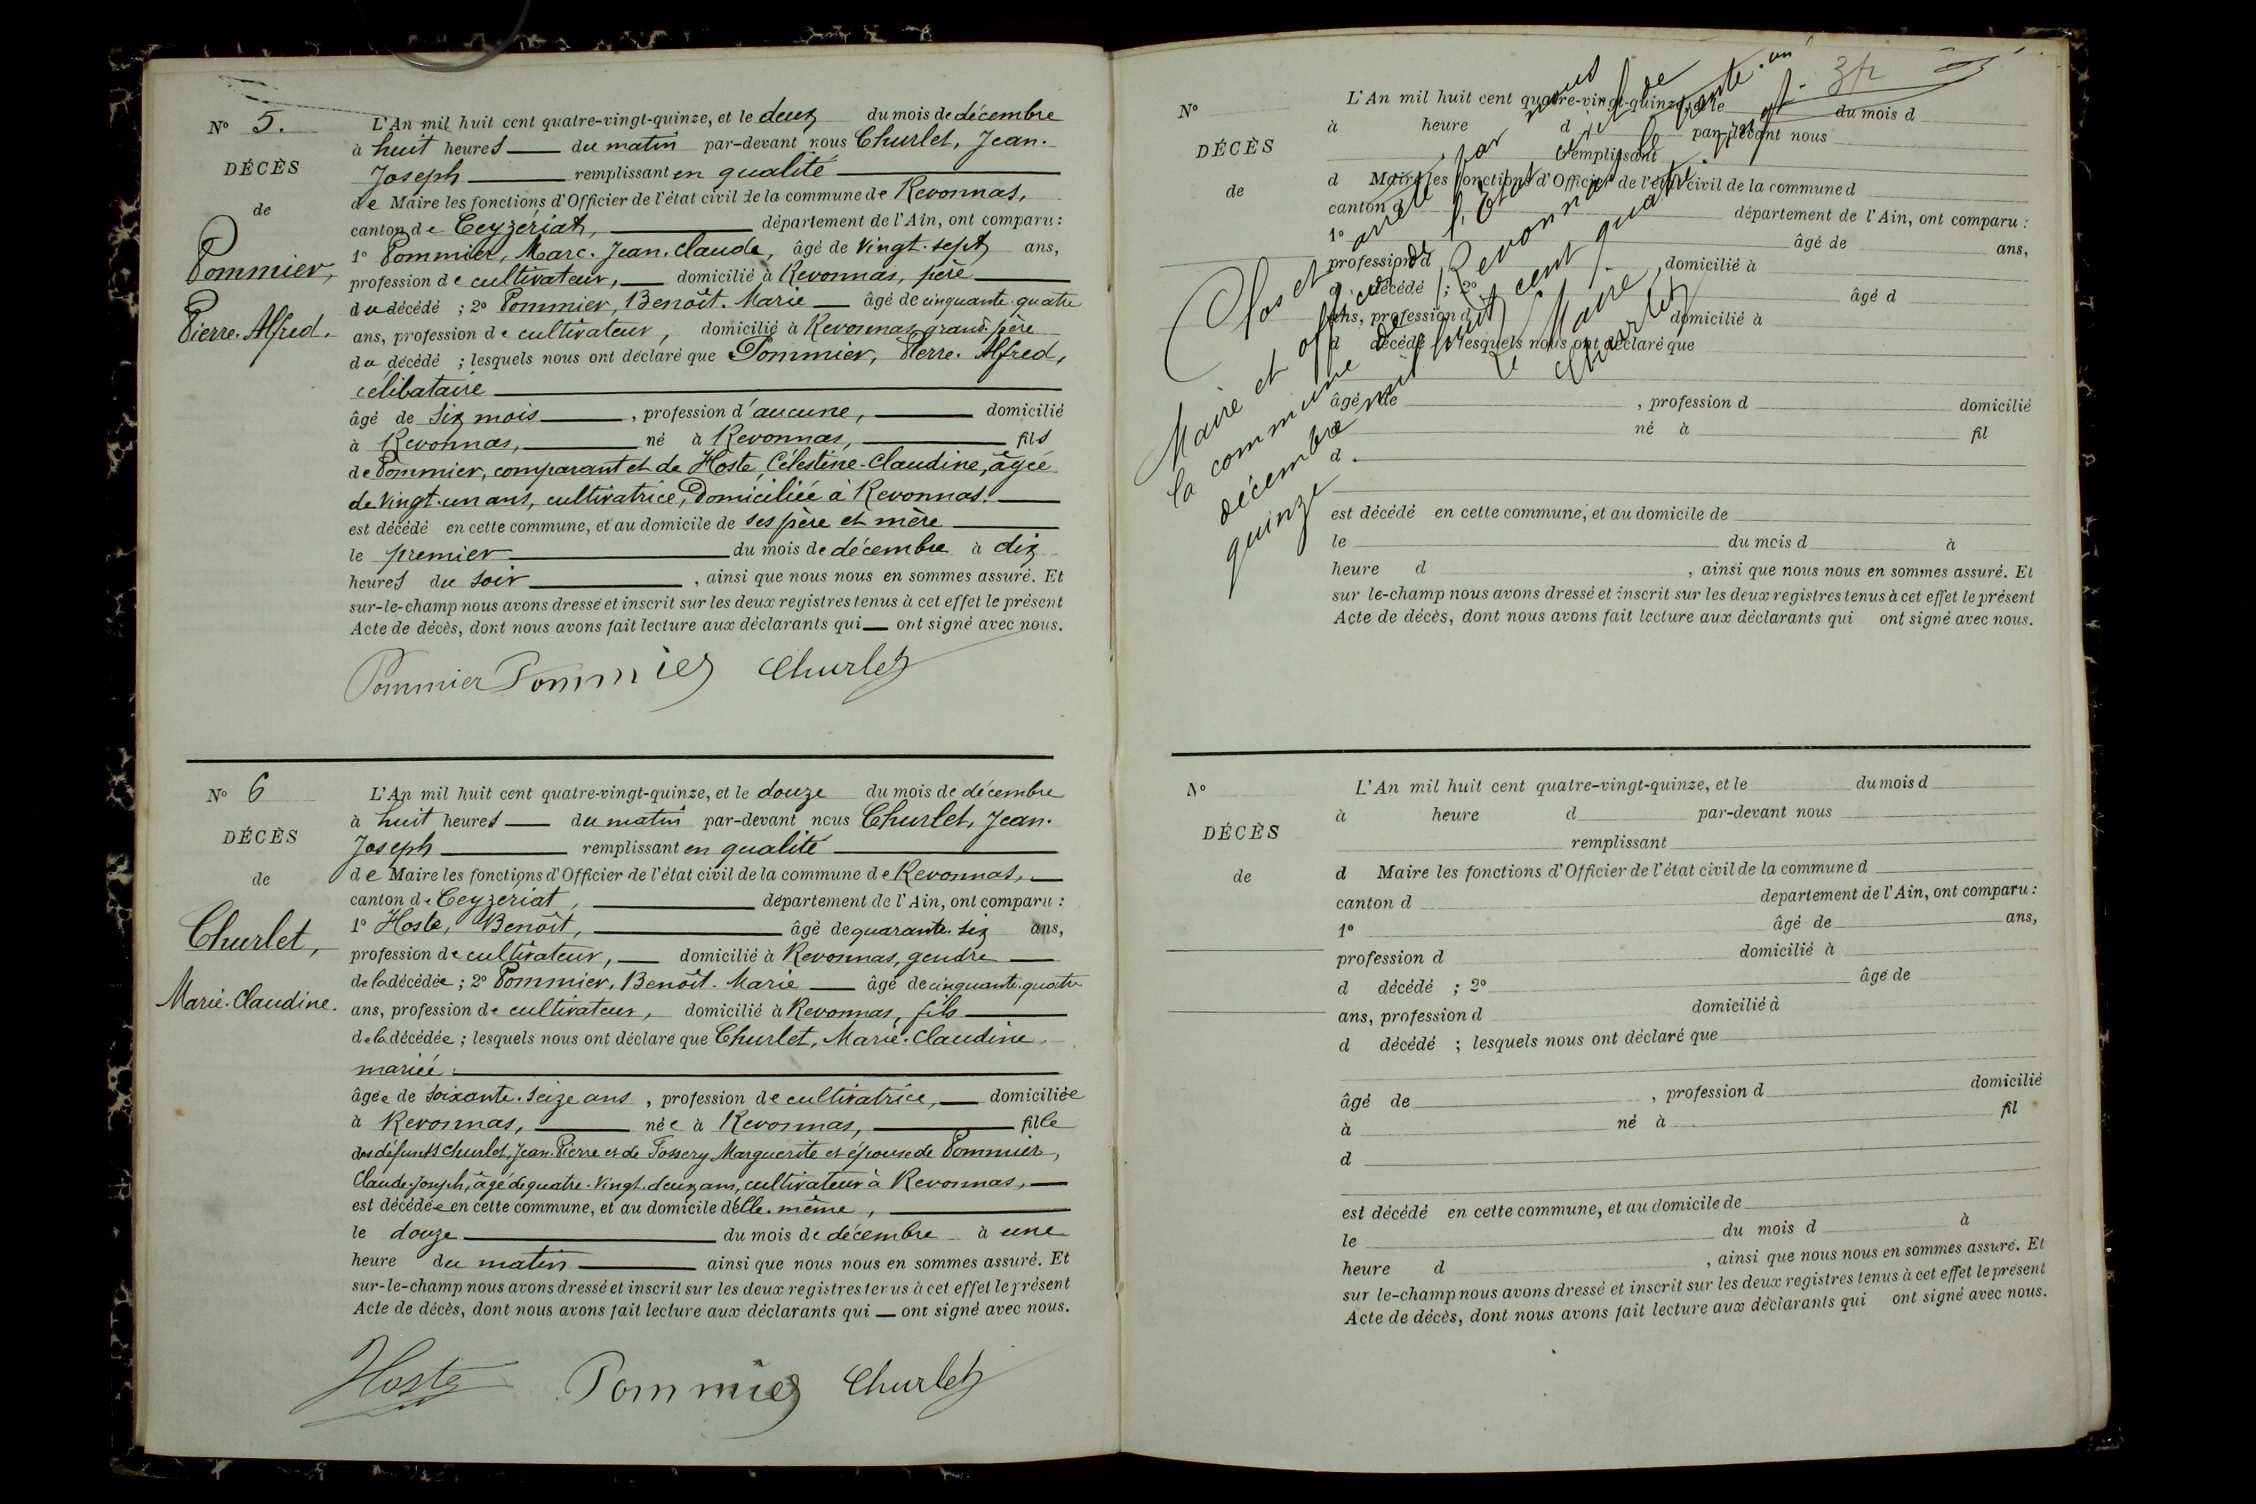 N° 5.
DÉCÈS
de
Pommier,
Pierre-Alfred.
L'An mil huit cent quatre-vingt-quinze, et le deux du mois de décembre
à huit heures du matin par-devant nous Churlet, Jean-
Joseph remplissant en qualité
de Maire les fonctions d'Officier de l'état civil de la commune de Revonnas,
canton de Ceyzériat, département de l'Ain, ont comparu :
1° Pommier, Marc-Jean-Claude, âgé de vingt-sept ans,
profession de cultivateur, domicilié à Revonnas, père
du décédé ; 2° Pommier, Benoît-Marie âgé de cinquante-quatre
ans, profession de cultivateur, domicilié à Revonnas, grand-père
du décédé ; lesquels nous ont déclaré que Pommier, Pierre-Alfred,
célibataire
âgé de six mois, profession d'aucune, domicilié
à Revonnas, né à Revonnas, fils
de Pommier, comparant et de Hoste, Célestine-Claudine, âgée
de vingt-un ans, cultivatrice, domiciliée à Revonnas.
est décédé en cette commune, et au domicile de ses père et mère
le premier du mois de décembre à dix
heures du soir, ainsi que nous nous en sommes assuré. Et
sur-le-champ nous avons dressé et inscrit sur les deux registres tenus à cet effet le présent
Acte de décès, dont nous avons fait lecture aux déclarants qui ont signé avec nous.
Pommier Pommier Churlet
N° 6
DÉCÈS
de
Churlet,
Marie-Claudine.
L'An mil huit cent quatre-vingt-quinze, et le douze du mois de décembre
à huit heures du matin par-devant nous Churlet, Jean-
Joseph remplissant en qualité
de Maire les fonctions d'Officier de l'état civil de la commune de Revonnas,
canton de Ceyzériat, département de l'Ain, ont comparu :
1° Hoste, Benoît, âgé de quarante-six ans,
profession de cultivateur, domicilié à Revonnas, gendre
de la décédée ; 2° Pommier, Benoît-Marie âgé de cinquante-quatre
ans, profession de cultivateur, domicilié à Revonnas, fils
de la décédée ; lesquels nous ont déclaré que Churlet, Marie-Claudine,
mariée
âgée de soixante-seize ans, profession de cultivatrice, domiciliée
à Revonnas, née à Revonnas, fille
des défunts Churlet, Jean-Pierre et de Tossery Marguerite et épouse de Pommier,
Claude-Joseph, âgé de quatre-vingt-deux ans, cultivateur à Revonnas,
est décédée en cette commune, et au domicile d'elle-même,
le douze du mois de décembre à une
heure du matin ainsi que nous nous en sommes assuré. Et
sur-le-champ nous avons dressé et inscrit sur les deux registres tenus à cet effet le présent
Acte de décès, dont nous avons fait lecture aux déclarants qui ont signé avec nous.
Hoste Pommier Churlet
3fr
N°
DÉCÈS
de
L'An mil huit cent quatre-vingt-quinze, et le du mois d
à heure d par-devant nous
remplissant
d Maire les fonctions d'Officier de l'état civil de la commune d
canton d département de l'Ain, ont comparu :
1° âgé de ans,
profession d domicilié à
d décédé ; 2° âgé d
ans, profession d domicilié à
d décédé ; lesquels nous ont déclaré que
âgé de , profession d domicilié
à né à fil
d
est décédé en cette commune, et au domicile de
le du mois d à
heure d , ainsi que nous nous en sommes assuré. Et
sur le-champ nous avons dressé et inscrit sur les deux registres tenus à cet effet le présent
Acte de décès, dont nous avons fait lecture aux déclarants qui ont signé avec nous.
Clos et arrêté par nous
Maire et officier de l'Etat civil de
la commune de Revonnas le trente-un
décembre mil huit cent quatre-vingt-
quinze
Le Maire,
Churlet
N°
DÉCÈS
de
L'An mil huit cent quatre-vingt-quinze, et le du mois d
à heure d par-devant nous
remplissant
d Maire les fonctions d'Officier de l'état civil de la commune d
canton d département de l'Ain, ont comparu :
1° âgé de ans,
profession d domicilié à
d décédé ; 2° âgé de
ans, profession d domicilié à
d décédé ; lesquels nous ont déclaré que
âgé de , profession d domicilié
à né à fil
d
est décédé en cette commune, et au domicile de
le du mois d à
heure d , ainsi que nous nous en sommes assuré. Et
sur le-champ nous avons dressé et inscrit sur les deux registres tenus à cet effet le présent
Acte de décès, dont nous avons fait lecture aux déclarants qui ont signé avec nous.